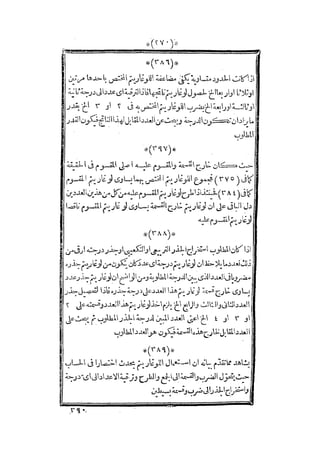 *(٢٧٠)*
*(٣٨٦)*
اذا كانت الحدود متساوية يكفى مضاعفة اللوغاريتم المختص باحدها مرتين
اوثلاثا اواربعا الخ لحصول لوغاريتم ناتجها فاذا الترقية اى عدد الى درجة ثانية
اوثالثة اورابعة الخ يضرب اللوغاريتم المختص به فى ٢ او ٣ الخ بقدر
مايراد ان تكون الدرجة ويبحث عن العدد المقابل لهذا الناتج فيكون القدر
المطلوب
*(٣٩٧)*
حيث كان خارج القسمة والمقسوم عليه اصلى المقسوم فى الحقيقة
كافى (٣٧٥) فمجموع اللوغاريتم المختص بهما يساوى لوغاريتم المقسوم
كافى (٣٨٤) فحينئذ اذا طرح لوغاريتم المقسوم عليه من كل من هذين العددين
دل الباقى على ان لوغاريتم خارج القسمة يساوى لوغاريتم المقسوم ناقصا
لوغاريتم المقسوم عليه
*(٣٨٨)*
اذا كان المطلوب استخراج الجذر التربيعى اوالتكعيبى اوجذر درجته ارقى من
ذلك لعدد ما يلاحظ ان لوغاريتم درجة اى عدد كان يكون من لوغاريتم جذره
مضروبا فى العدد الذى يبين الدرجة المطلوبة ومن الواضح ان لوغاريتم جذر عدد
يساوى خارج قسمة لوغاريتم هذا العدد على درجة جذره فاذا لتحصيل جذر
العدد الثانى والثالث والرابع الخ يلزم اخذ لوغاريتم هذا العدد وقسمته على ٢
او ٣ او ٤ الخ اعنى العدد المبين لدرجة الجذر المطلوب ثم يبحث على
العدد المقابل لخارج هذه القسمة فيكون هو العدد المطلوب
*(٣٨٩)*
يشاهد مما تقدم بيانه ان استعمال اللوغاريتم يحدث اختصارا فى الحساب
حيث يتحول الضرب والقسمة الى الجمع والطرح وترقية الاعداد الى اى درجة
واستخراج الجذر الى ضرب وقسمة بسيطين
٣٩٠